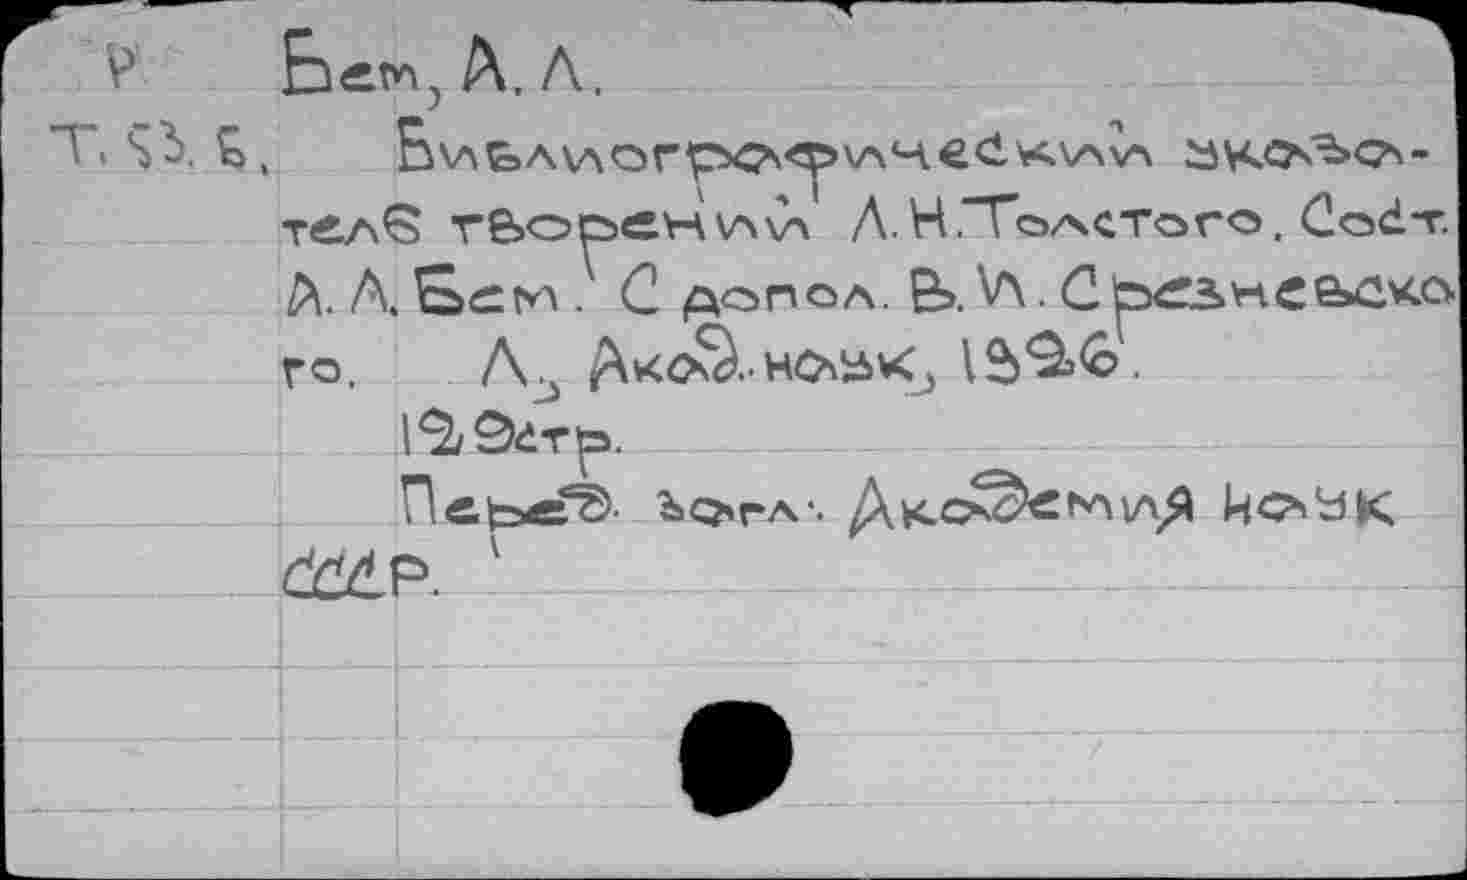 Р Бем, А. Л.
Т. Б. Библиографический указа-
тель творений Л. Н. Толстого. Сост.
А. Л. Бем. С допол. В. И. Срезневско
го. Л., Акад. наук, 1926.
стр.
Перед загл.: Академия наук
СССР.